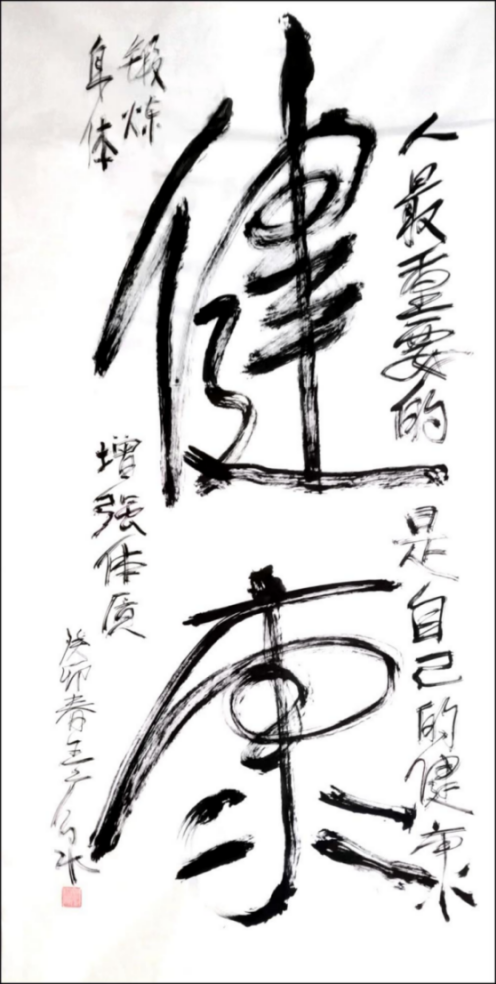 人最重要的是自己的健康
健康
锻炼
身体
增强体质
癸卯春